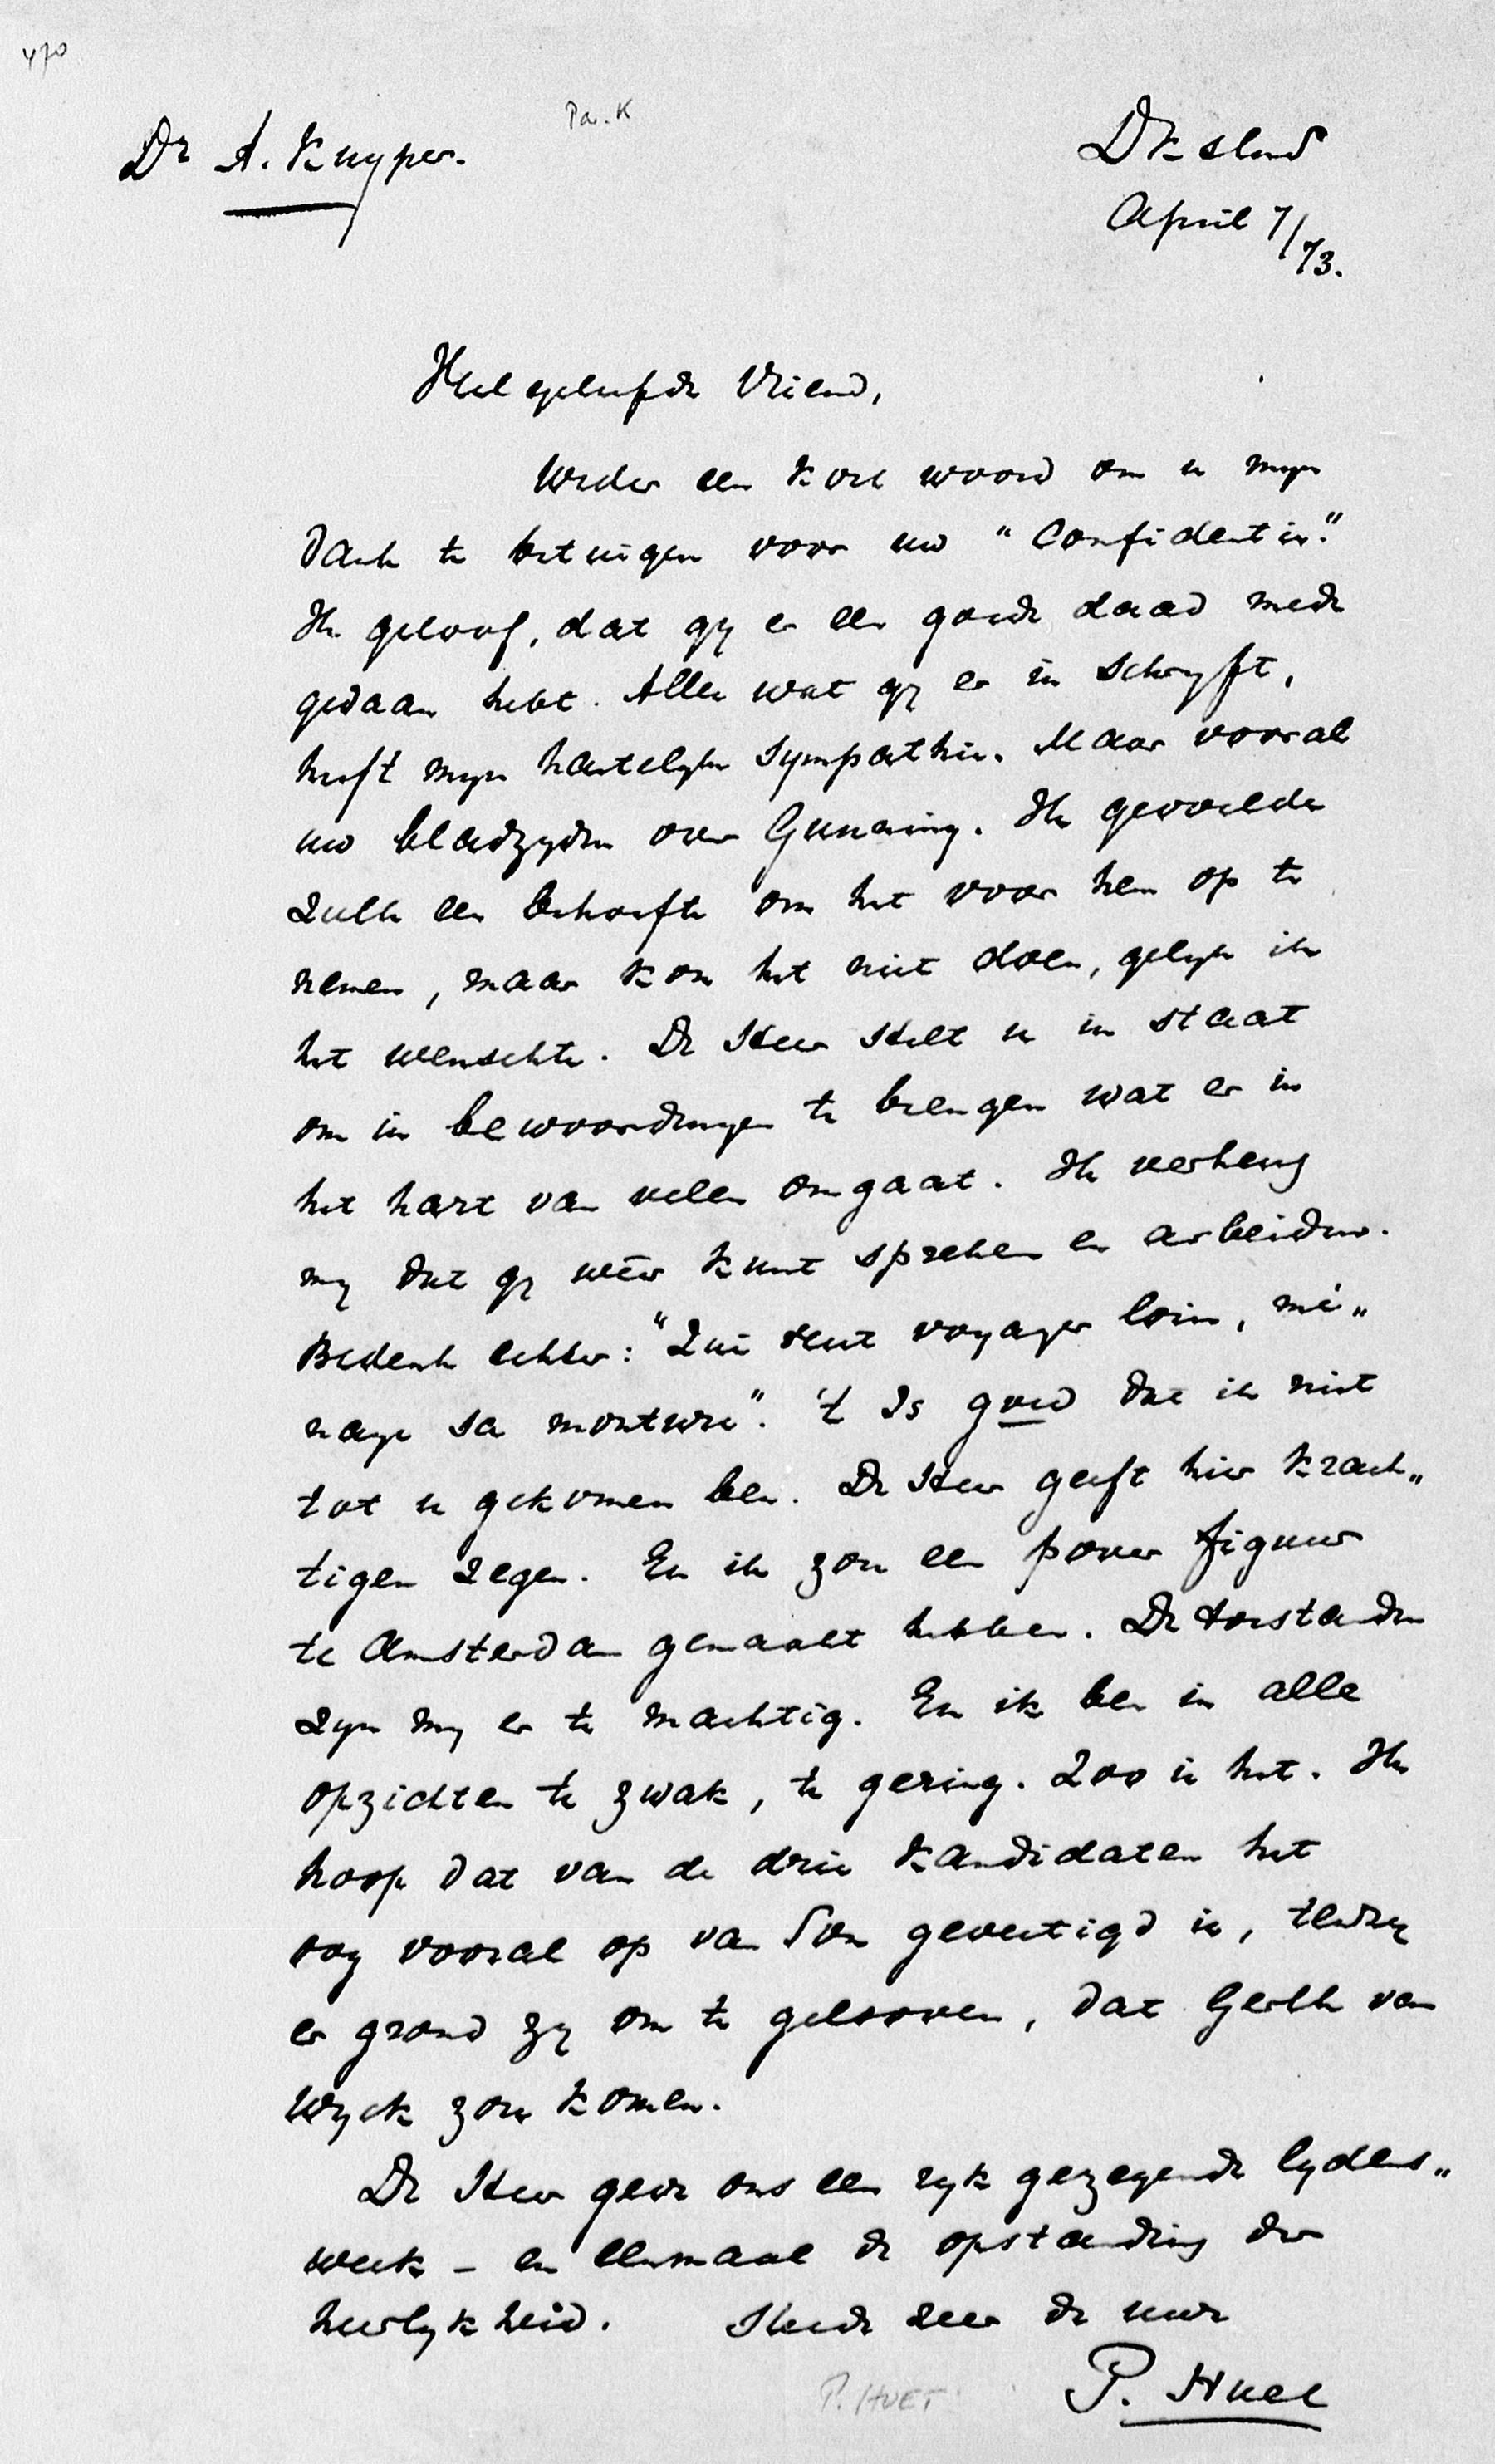 470
Pa. K
Dr A. Kuyper.
Dksland
April 7/73.
Heel geliefde Vriend,
Weder een kort woord om u mijn
dank te betuigen voor uw "Confidentie."
Ik geloof, dat gij er een goede daad mede
gedaan hebt. Alles wat gij er in schrijft,
heeft mijn hartelijke sympathie. Maar vooral
uw bladzijden over Gunning. Ik gevoelde
zulk een behoefte om het voor hem op te
nemen, maar kon het niet doen, gelijk ik
het wenschte. De Heer stelt u in staat
om in bewoordingen te brengen wat er in
het hart van velen omgaat. Ik verheug
mij dat gij wêer kunt spreken en arbeiden.
Bedenk echter: "Qui veut voyager loin, mé„
nage sa monture". 't Is goed dat ik niet
tot u gekomen ben. De Heer geeft hier krach„
tigen zegen. En ik zou een pover figuur
te Amsterdam gemaakt hebben. De toestanden
zijn mij er te machtig. En ik ben in alle
opzichten te zwak, te gering. Zoo is het. Ik
hoop dat van de drie kandidaten het
oog vooral op van Son gevestigd is, tenzij
er grond zij om te gelooven, dat Gerth van
Wijck zou komen.
De Heer geve ons een rijk gezegende lydens„
week – en eenmaal de opstanding der
heerlijkheid. Steeds zeer de uwe
P. Huet
P. HUET